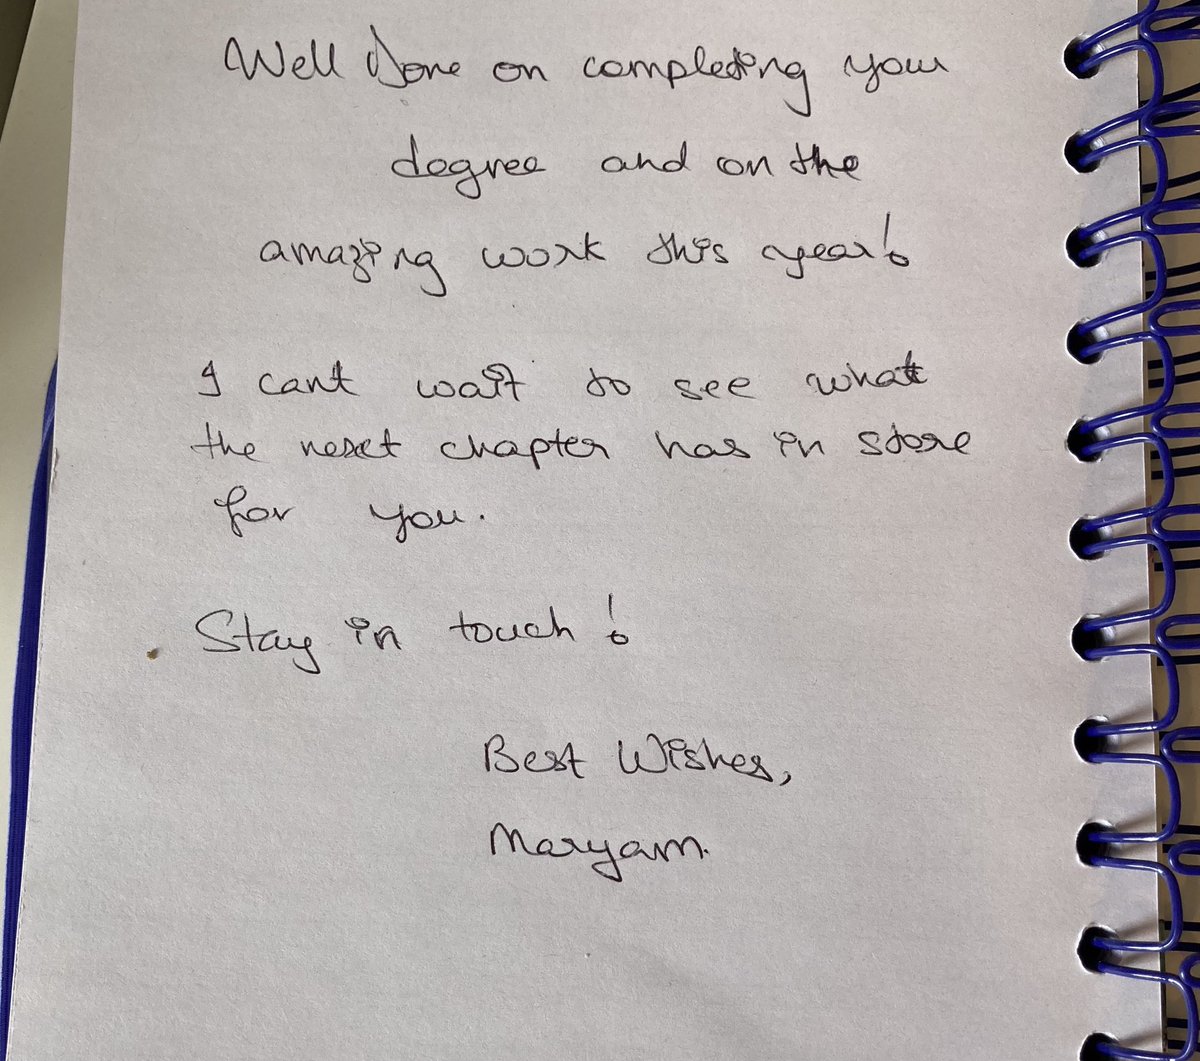 Well Done on completing your
degree and on the
amazing work this year!
I cant wait to see what
the next chapter has in store
for you.
Stay in touch!
Best Wishes,
Maryam.